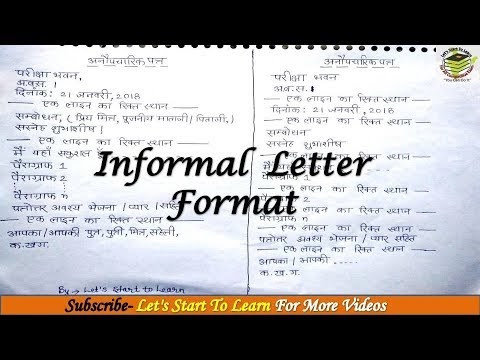 अनौपचारिक पत्र
परीक्षा भवन,
अ.ब.स. ।
दिनांक: 21 जनवरी, 2018
— एक लाइन का रिक्त स्थान —
सम्बोधन, ( प्रिय मित्र, पूजनीय माताजी / पिताजी,)
सस्नेह शुभाशीष ।
— एक लाइन का रिक्त स्थान —
मैं यहाँ सकुशल
पैराग्राफ 1
पैराग्राफ 2
पैराग्राफ n
पत्रोत्तर अवश्य भेजना / प्यार / सहित
— एक लाइन का रिक्त स्थान —
आपका / आपकी पुत्र, पुत्री, मित्र, सहेली,
क.ख.ग.
By → Let's Start to Learn
अनौपचारिक पत्र
परीक्षा भवन
अ.ब.स.
— एक लाइन का रिक्त स्थान —
दिनांक: 21 जनवरी, 2018
— एक लाइन का रिक्त स्थान —
सम्बोधन
सस्नेह शुभाशीष
का रिक्त स्थान —
पैराग्राफ 2
— एक लाइन का रिक्त स्थान —
पैराग्राफ n
— एक लाइन का रिक्त स्थान —
पत्रोत्तर अवश्य भेजना / प्यार सहित
— एक लाइन का रिक्त स्थान —
आपका / आपकी .....
क.ख.ग.
Informal Letter
Format
Let's Start To Learn
"You Can Do It"
Subscribe- Let's Start To Learn For More Videos